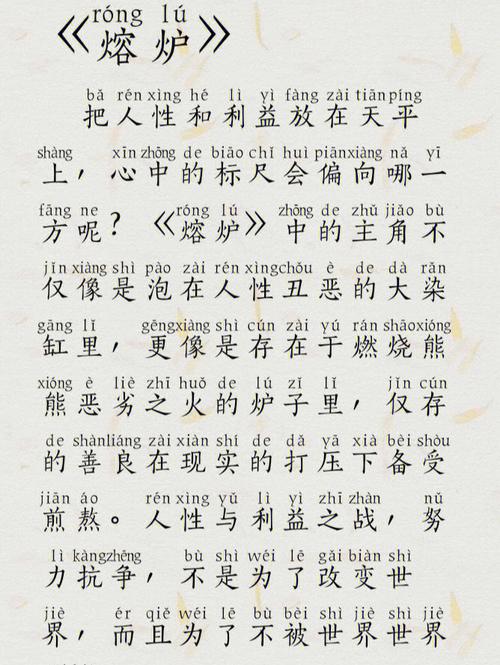 róng lú
《熔炉》
bǎ rén xìng hé lì yì fàng zài tiān píng
把人性和利益放在天平
shàng xīn zhōng de biāo chǐ huì piān xiàng nǎ yī
上，心中的标尺会偏向哪一
fāng ne róng lú zhōng de zhǔ jiǎo bù
方呢？《熔炉》中的主角不
jǐn xiàng shì pào zài rén xìng chǒu è de dà rǎn
仅像是泡在人性丑恶的大染
gāng lǐ gèng xiàng shì cún zài yú rán shāo xióng
缸里，更像是存在于燃烧熊
xióng è liè zhī huǒ de lú zǐ lǐ jǐn cún
熊恶劣之火的炉子里，仅存
de shàn liáng zài xiàn shí de dǎ yā xià bèi shòu
的善良在现实的打压下备受
jiān áo rén xìng yǔ lì yì zhī zhàn nǔ
煎熬。人性与利益之战，努
lì kàng zhēng bù shì wéi lē gǎi biàn shì
力抗争，不是为了改变世
jiè ér qiě wéi lē bù bèi shì jiè shì jiè
界，而且为了不被世界世界